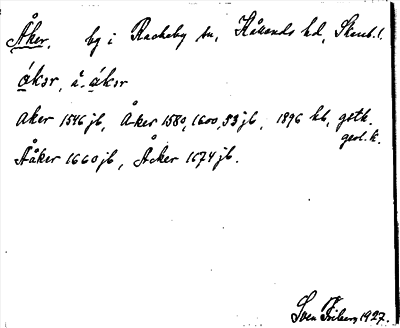 Åker, by i Rackeby sn, Kållands hd, Skarab. l.
åkər, i. åkər
aker 1546 jb, Åker 1580, 1600, 53 jb, 1896 kb, gstk.
geol. k.
Aåker 1660 jb, Åcker 1674 jb.
Sven Friberg 1927.